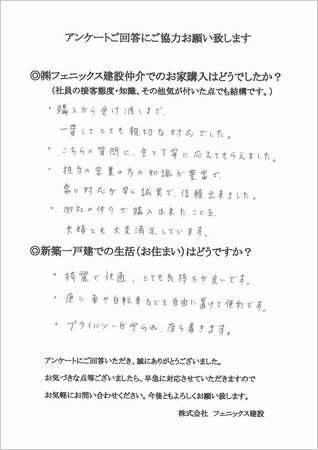 アンケートご回答にご協力お願い致します
◎㈱フェニックス建設仲介でのお家購入はどうでしたか？
（社員の接客態度・知識、その他気が付いた点でも結構です。）
・購入から受け渡しまで、
一貫してとても親切な対応でした。
・こちらの質問に、全て丁寧に応えてもらえました。
・担当の営業の方の知識が豊富で、
常に対応が早く誠実で、信頼出来ました。
・御社の仲介で購入出来たことを、
夫婦とも大変満足しています。
◎新築一戸建での生活（お住まい）はどうですか？
・綺麗で快適、とても気持ちが良いです。
・庭に車や自転車などを自由に置けて便利です。
・プライバシーが守られ、落ち着きます。
アンケートにご回答いただき、誠にありがとうございました。
お気づきな点等ございましたら、早急に対応させていただきますので
お気軽にお問い合わせください。今後ともよろしくお願い致します。
株式会社　フェニックス建設